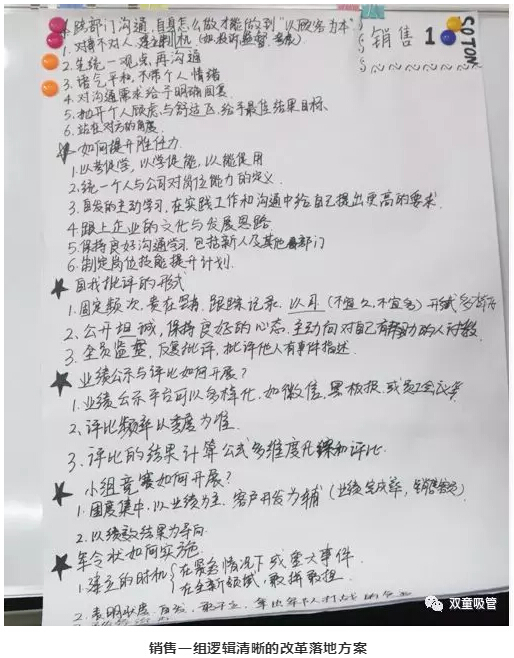 销售1
SOTON
跨部门沟通,自身怎么做才能做到"以顾客为本"
1.对事不对人,建立
2.先统一观点,再沟通
3.语气平和,不带个人情绪
4.对沟通需求给予明确回复
5.抛开个人顾虑与舒适区,给予最佳结果目标.
6.站在对方的角度.
如何提升胜任力.
1.以考促学,以学促能,以能促用
2.统一个人与公司对岗位能力的定义.
3.自发的主动学习,在实践工作和沟通中给自己提出更高的要求.
4.跟上企业的文化与发展思路.
5.保持良好沟通学习.包括新人及其他部门
6.制定岗位技能提升计划.
自我批评的形式
1.固定频次,贵在 跟踪记录,以月(不宜久,不宜多)开诚
2.公开坦诚,保持良好的心态,主动向对自己有帮助的人
3.全员监督,反复批评,批评他人有事件描述.
业绩公示与评比如何开展?
1.业绩公示平台可以多样化,如微信,黑板报,或员工会议等
2.评比频率以季度为准.
3.评比的结果计算公式多维度化 评比.
小组竞赛如何开展?
1.围度集中,以业绩为主,客户开发为辅(业绩完成率,销售
2.以绩效结果为导向.
军令状如何实施.
1.建立的时机 在紧急情况下或重大事件.
在全新领域,敢拼敢担.
2.表明
双童吸管
销售一组逻辑清晰的改革落地方案